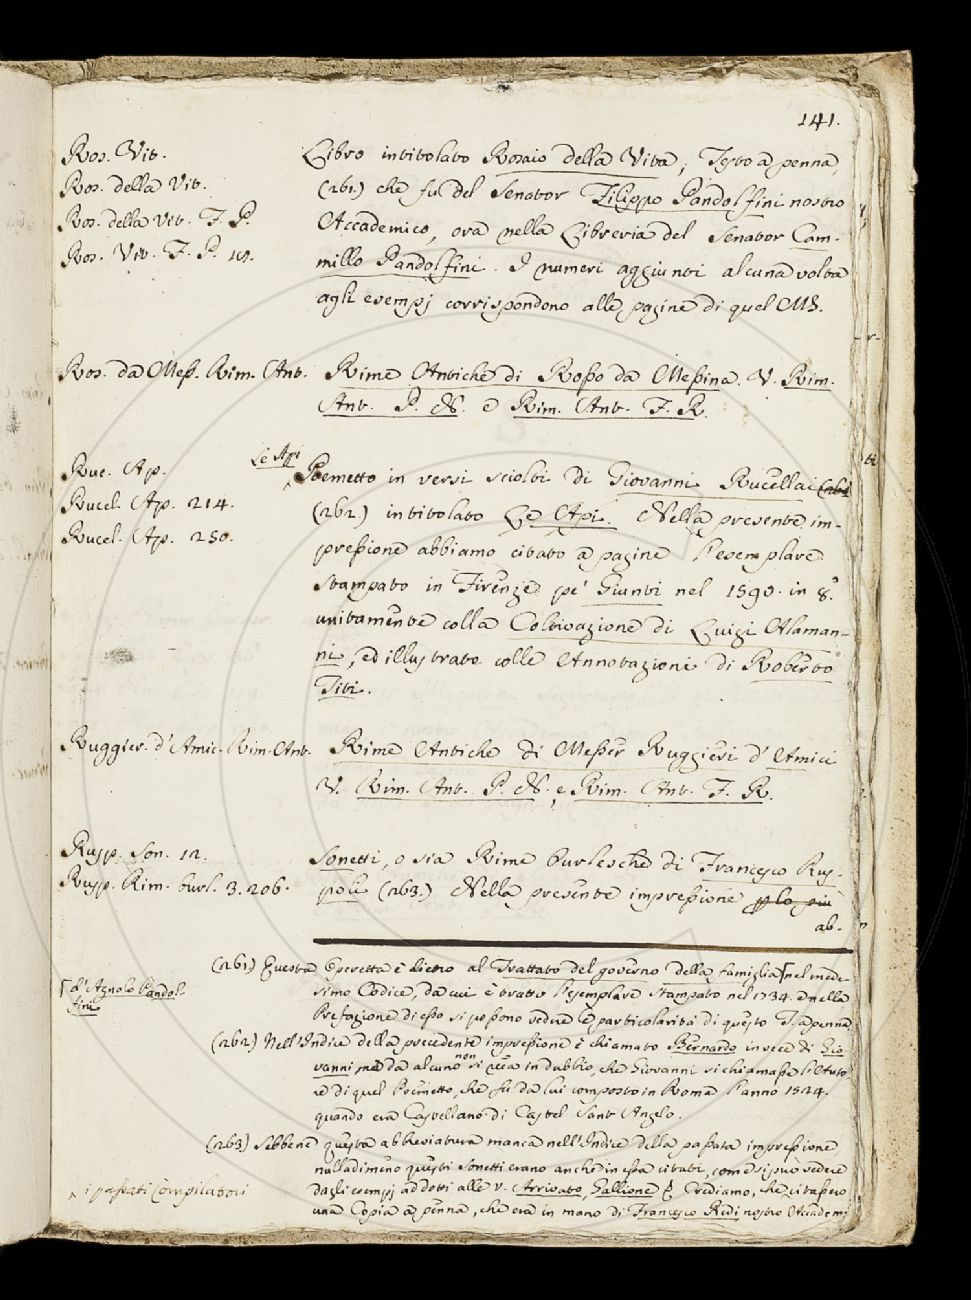 141.
Ros. Vit.
Ros. della Vit.
Ros. della Vit. F. P.
Ros. Vit. F. P. 10.
Libro intitolato Rosaio della Vita, Testo a penna,
(261) che fu del Senator Filippo Pandolfini nostro
Accademico, ora nella Libreria del Senator Cam-
millo Pandolfini. I numeri aggiunti alcuna volta
agli esempj corrispondono alle pagine di quel MS.
Ros. da Mess. Rim. Ant.
Rime Antiche di Rosso da Messina. V. Rim.
Ant. P. N. e Rim. Ant. F. R.
Ruc. Ap.
Rucel. Ap. 214.
Rucel. Ap. 250.
Le Api
Poemetto in versi sciolti di Giovanni Rucellai (262
(262.) intitolato Le Api. Nella presente im-
pressione abbiamo citato a pagine l'esemplare
stampato in Firenze pe' Giunti nel 1590. in 8.º
unitamente colla Coltivazione di Luigi Alaman-
ni, ed illustrato colle Annotazioni di Roberto
Titi.
Ruggier. d'Amic. Rim. Ant.
Rime Antiche di Messer Ruggieri d'Amici
V. Rim. Ant. P. N. e Rim. Ant. F. R.
Rusp. Son. 12.
Rusp. Rim. burl. 3. 206.
Sonetti, o sia Rime burlesche di Francesco Rus-
poli (263.) Nella presente impressione p lo più
ab-
(261) Questa Operetta è dietro al Trattato del governo della famiglia [nel mede-
[d'Agnolo Pandol-
fini
simo Codice, da cui è tratto l'esemplare stampato nel 1734. e nella
Prefazione di esso si possono vedere le particolarità di questo T. a penna
(262) Nell'Indice della precedente impressione è chiamato Bernardo invece di Gio
vanni, ma da alcuno non si reca in dubbio, che Giovanni si chiamasse l'Auto
re di quel Poemetto, che fu da lui composto in Roma l'anno 1524.
quando era Castellano di Castel Sant'Angelo.
(263) Sebbene questa abbreviatura manca nell'Indice della passata impressione
nulladimeno questi Sonetti erano anche in essa citati, come si può vedere
dagli esempj addotti alle v. Arrivato, Gallione &. Crediamo, che citassero
i passati Compilatori
una Copia a penna, che era in mano di Francesco Redi nostro Accademi